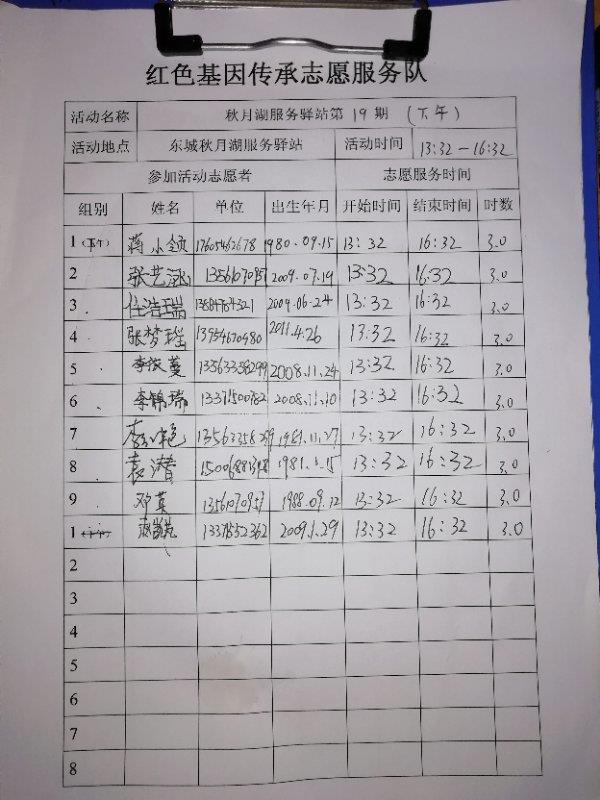 红色基因传承志愿服务队
活动名称 秋月湖服务驿站第19期（下午）
活动地点 东城秋月湖服务驿站 活动时间 13:32－16:32
参加活动志愿者 志愿服务时间
组别 姓名 单位 出生年月 开始时间 结束时间 时数
1（下午） 蒋小 17605462678 1980.09.15 13:32 16:32 3.0
2 张艺 2009.07.19 13:32 16:32 3.0
3 任浩瑞 2009.06.24 13:32 16:32 3.0
4 张梦瑶 13954670980 2011.4.26 13:32 16:32 3.0
5 李依蔓 13563358299 2008.11.24 13:32 16:32 3.0
6 李锦瑞 13371500782 2008.11.10 13:32 16:32 3.0
7 李 艳 13563358299 1981.11.27 13:32 16:32 3.0
8 袁潜 1981.1.15 13:32 16:32 3.0
9 邓英 1988.09.12 13:32 16:32 3.0
1 赵凯 13371552362 2009.1.29 13:32 16:32 3.0
2
3
4
5
6
7
8